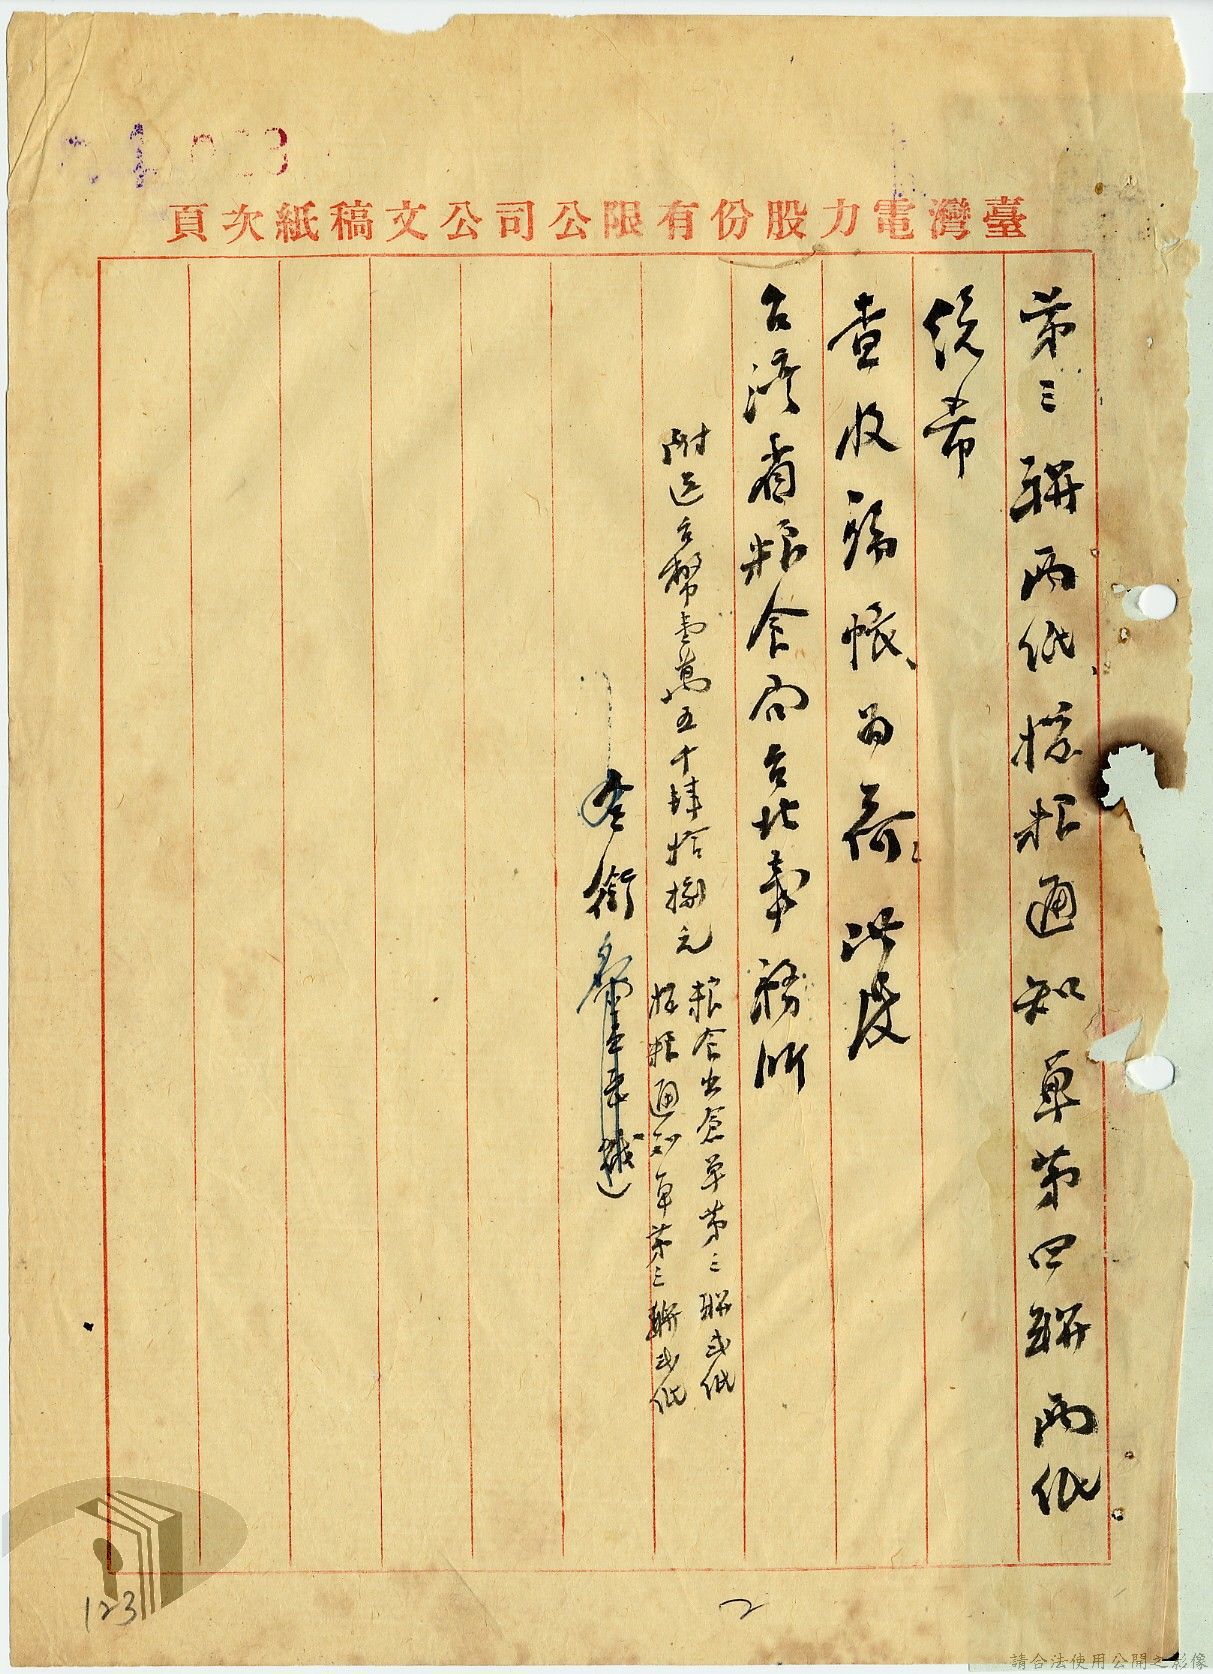 臺灣電力股份有限公司公文稿紙次頁
第三聯兩紙、撥粮通知單第四聯兩紙
統希
查收歸帳、為荷。此致
台灣省粮食局台北事務所
附送台幣壹萬五千肆拾捌元
粮食出倉單第三聯弍紙
撥粮通知單第三聯弍紙
全銜
123
2
請合法使用公開之影像